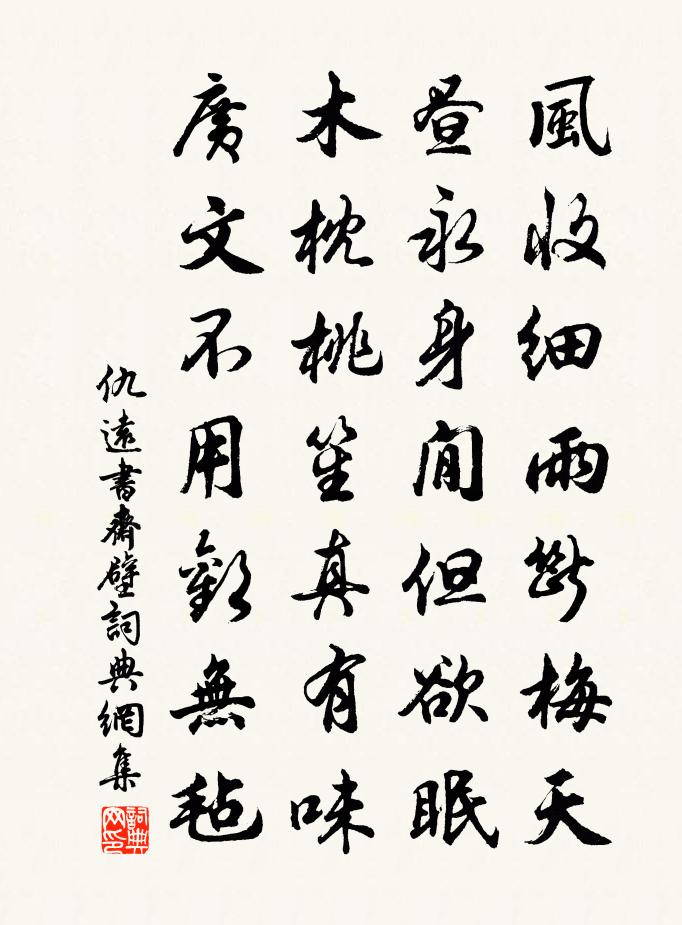 風收細雨斷梅天
昼永身閒但欲眠
木枕桃笙真有味
廣文不用歎無毡
仇遠書齋壁詞典網集
詞典网印